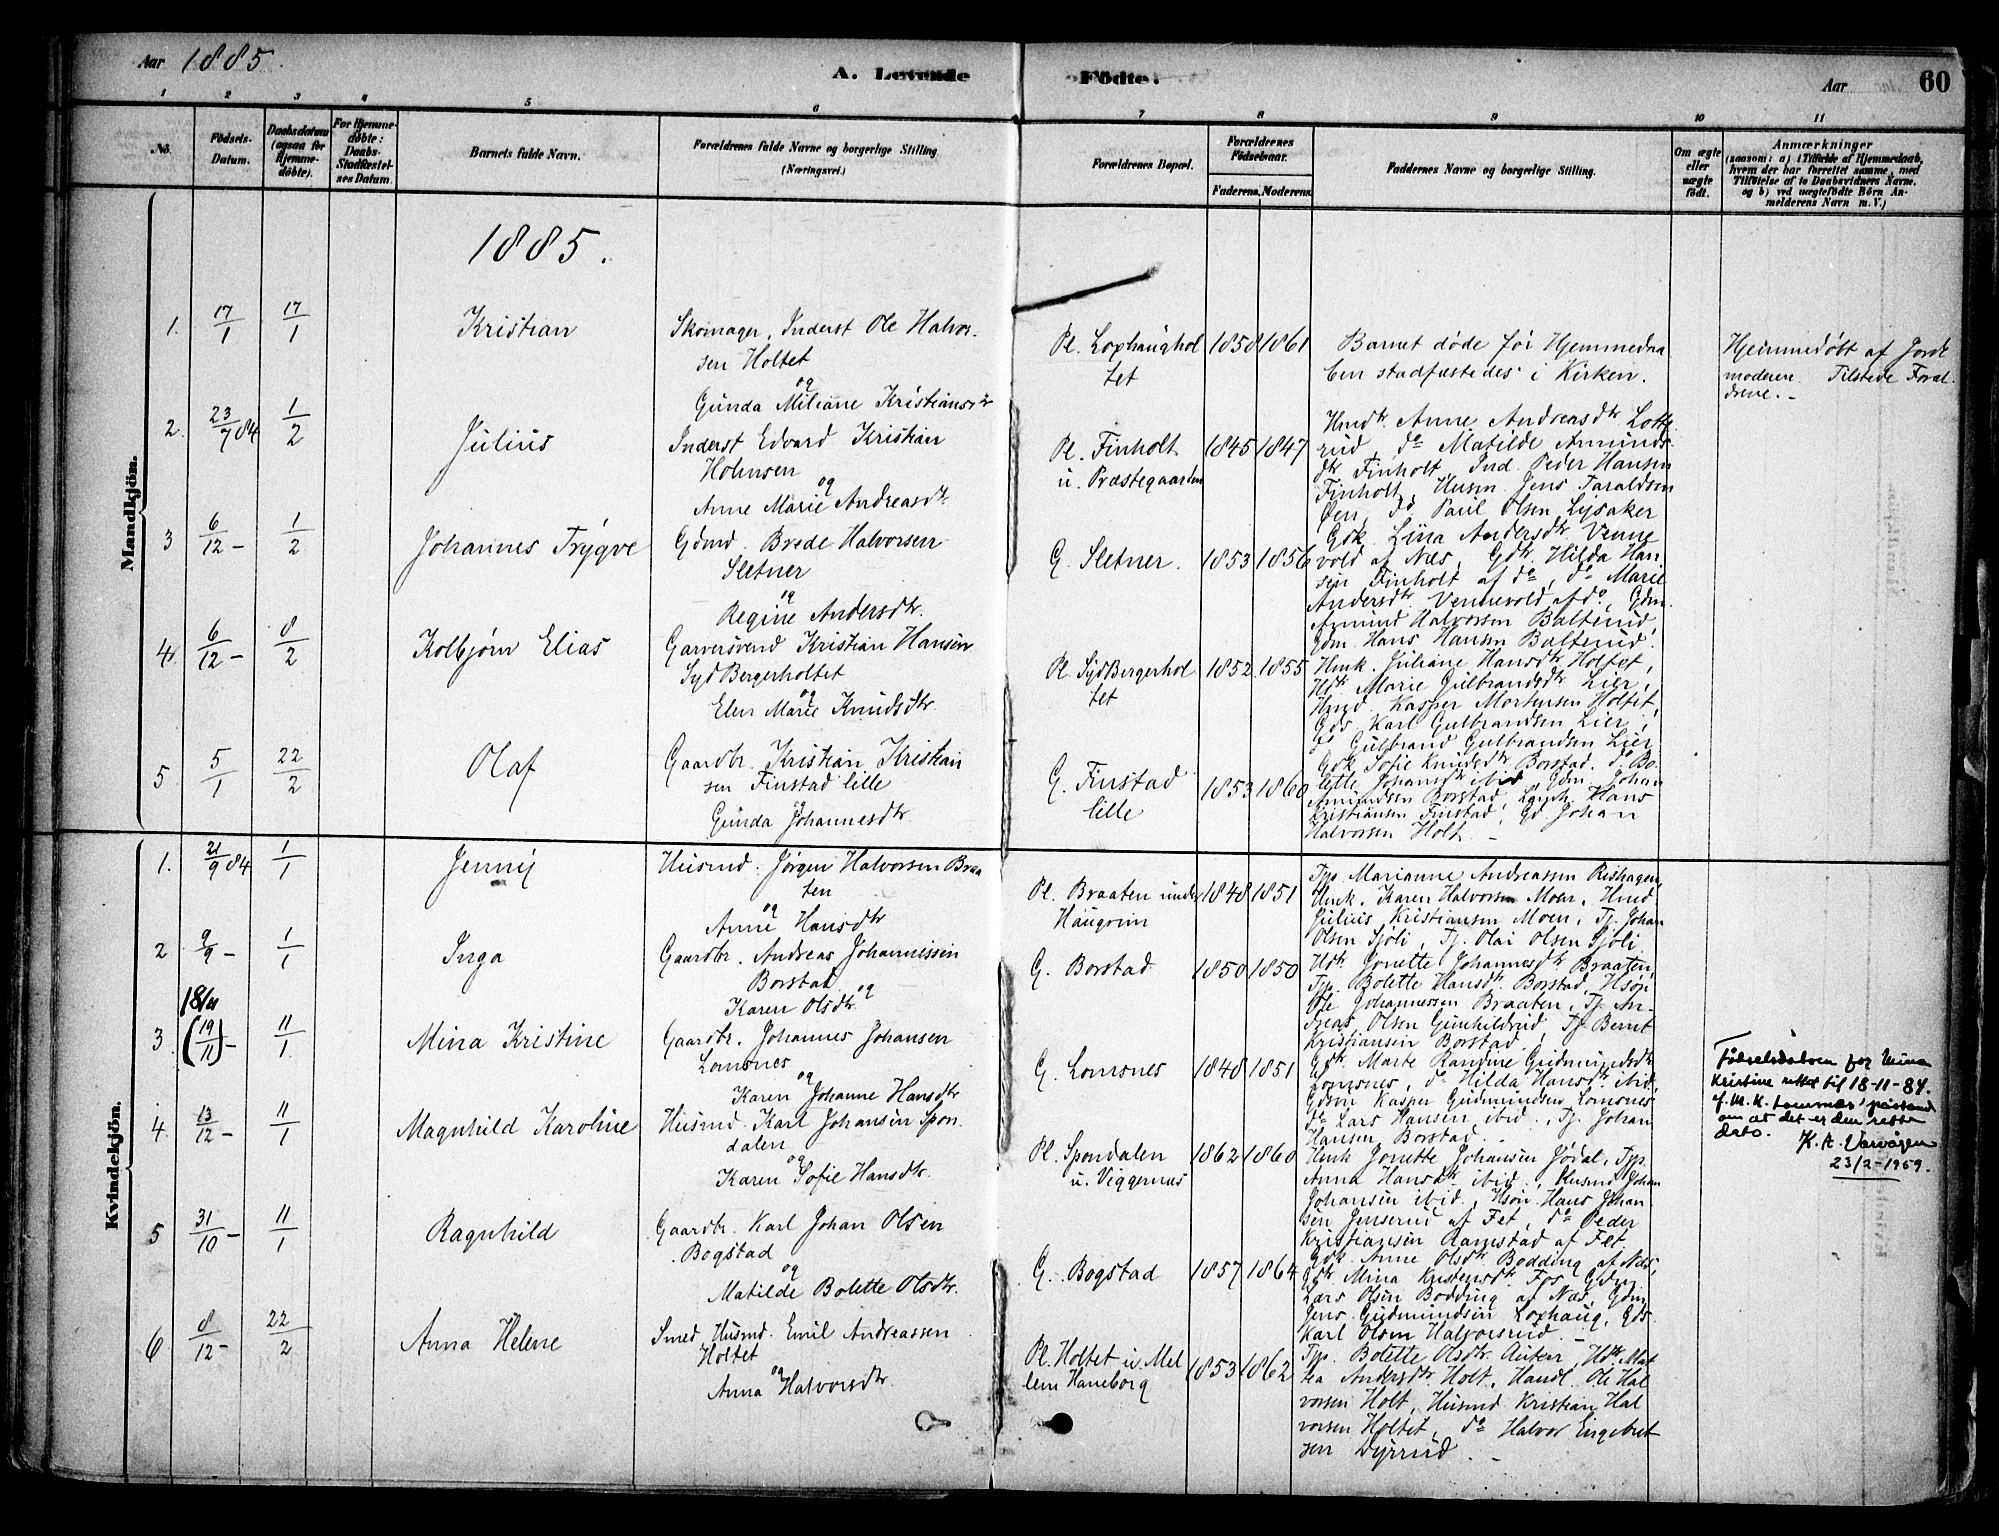 Aar 1885.
A. Levende
Födte.
Aar
60
1
2
3
4
5
6
7
8
9
10
11
No.
Födsels-Datum.
Daabsdatum (ogsaa for Hjemme-döbte).
For Hjemme-döbte: Daabs-Stadfæstel-ses Datum.
Barnets fulde Navn.
Forældrenes fulde Navne og borgerlige Stilling (Næringsvei.)
Forældrenes Bopæl.
Forældrenes Födselsaar.
Faderens.
Moderens.
Faddernes Navne og borgerlige Stilling.
Om ægte eller uægte födt.
Anmærkninger
(saasom: a) i Tilfælde af Hjemmedaab,
hvem der har forrettet samme, med
Tilföielse af to Daabsvidners Navne,
og b) ved uægtefödte Börn An-
melderens Navn m. V.)
Mandkjön.
1885.
1. 17/1 17/1 Kristian
Skomager, Inderst Ole Halvor-
sen Holtet
og
Gunda Miliane Kristiansdtr
Pl. Loxhaughol
tet
1858 1861
Barnet døde før Hjemmedaa
ben stadfæstedes i Kirken.
Hjemmedøbt af Jorde
moderen. Tilstede Foræl
drene.-
2. 23/7 84 1/2 Julius
Inderst Edvard Kristian
Holmsen
og
Anne Marie Andreasdtr
Pl. Finholt
u. Præstegaarden
1845 1847
Hmdtr Anne Andreasdtr Lotte
rud, do Matilde Amunds-
dtr Finholt, Ind. Peder Hansen
Finholt, Husm Jens Taraldsen
Øen, do Paul Olsen Lysaker
3 6/12 - 1/2 Johannes Trygve
Gdmd. Brede Halvorsen
Sletner
og
Regine Andersdtr.
G. Sletner.
1853 1856
Gdk. Lina Andersdtr Venne
vold af Næs, Gdtr Hilda Han-
sen Finholt af do, do Marie
Andersdtr Vennevold af do, Gdm.
Amund Halvorsen Balterud,
Gdm. Hans Hansen Balterud.
4. 6/12 - 8/2 Kolbjørn Elias
Garversvend Kristian Hansen
Syd Bergerholtet
og
Elen Marie Knudsdtr
Pl. Syd Bergerhol
tet
1852 1855
Hmk. Juliane Hansdtr Holtet,
Hdtr Marie Gulbrandsdtr Lier,
Kasper Mortensen Holtet,
Gds Karl Gulbrandsen Lier,
do Gulbrand Gulbrandsen Lier
5 5/1 22/2 Olaf
Gaardbr. Kristian Kristian
sen Finstad lille
og
Gunda Johannesdtr.
G. Finstad
lille
1853 1860
Gdk Sofie Knudsdtr Borstad. do Bo-
lette Johansdtr ibid Gdm. Johan
Amundsen Borstad, Hans
Kristiansen Finstad, Gd Johan
Halvorsen Holt -
Kvindekjön.
1. 21/9 84 1/1 Jenny
Husmd. Jørgen Halvorsen Braa
ten
og
Anne Hansdtr
Pl. Braaten under
Haugrim
1848 1851
Tjp Marianne Andreassen Rishagen,
Hmk. Karen Halvorsen Moen, Hmd
Julius Kristiansen Moen, Tj. Johan
Olsen Sjøli, Tj. Olai Olsen Sjøli
2 9/9 - 1/1 Inga
Gaardbr. Andreas Johannessen
Borstad
og
Karen Olsdtr
G. Borstad
1850 1850
Hdtr Jonette Johannesdtr Braaten,
Tjp. Bolette Hansdtr Borstad, Hsøn
Ole Johannessen Braaten, Tj. An-
dreas Olsen Gunhildrud, Tj Bernt
Kristiansen Borstad.
18/11
3. (19/11) - 11/1 Mina Kristine
Gaardbr. Johannes Johansen
Lomsnes
og
Karen Johanne Hansdtr
G. Lomsnes
1848 1851
Gdtr Marte Randine Gudmundsdtr
Lomsnes, do Hilda Hansdtr ibid,
Gdsøn Kasper Gudmundsen Lomsnes
do Lars Hansen, ibid., Tj. Johan
Hansen Borstad.
Fødselsdatoen for Mina
Kristine rettet til 18-11-84.
f. M. K. Lomsnæs' påstand
om at det er den rette
dato. K. A. Varvågen
23/2-1959.
4. 13/12 - 11/1 Magnhild Karoline
Husmd. Karl Johansen Spon-
dalen
og
Karen Sofie Hansdtr.
Pl. Spondalen
u. Viggernæs
1862 1860
Hmk Jonette Johansen Jødal, Tjp.
Anna Hansdtr ibid., Husmd Johan
Johansen ibid., Hsøn Hans Johan-
sen Jenserud af Fet, do Peder
Kristiansen Ramstad af Fet
5 31/10 - 11/1 Ragnhild
Gaardbr. Karl Johan Olsen
Bogstad
og
Matilde Bolette Olsdtr.
G. Bogstad
1857 1864
Gdk. Anne Olsdtr Bodding af Næs,
Gdtr Mina Kristensdtr Fos, Gdm
Lars Olsen Bodding af Næs, Gdm
Jens Gudmundsen Loxhaug, Gds.
Karl Olsen Halvorsrud. -
6. 8/12 - 22/2 Anna Helene
Smed, Husmd. Emil Andreassen
Holtet
og
Anna Halvorsdtr
Pl. Holtet u Mel
lem Haneborg
1853 1862
Tjp. Bolette Olsdtr Auten, Hdtr Mat
tea Andersdtr Holt, Handl. Ole Hal
vorsen Holt, Husmd Kristian Hal
vorsen Holtet, do Halvor Engebret
sen Dyrrud. -